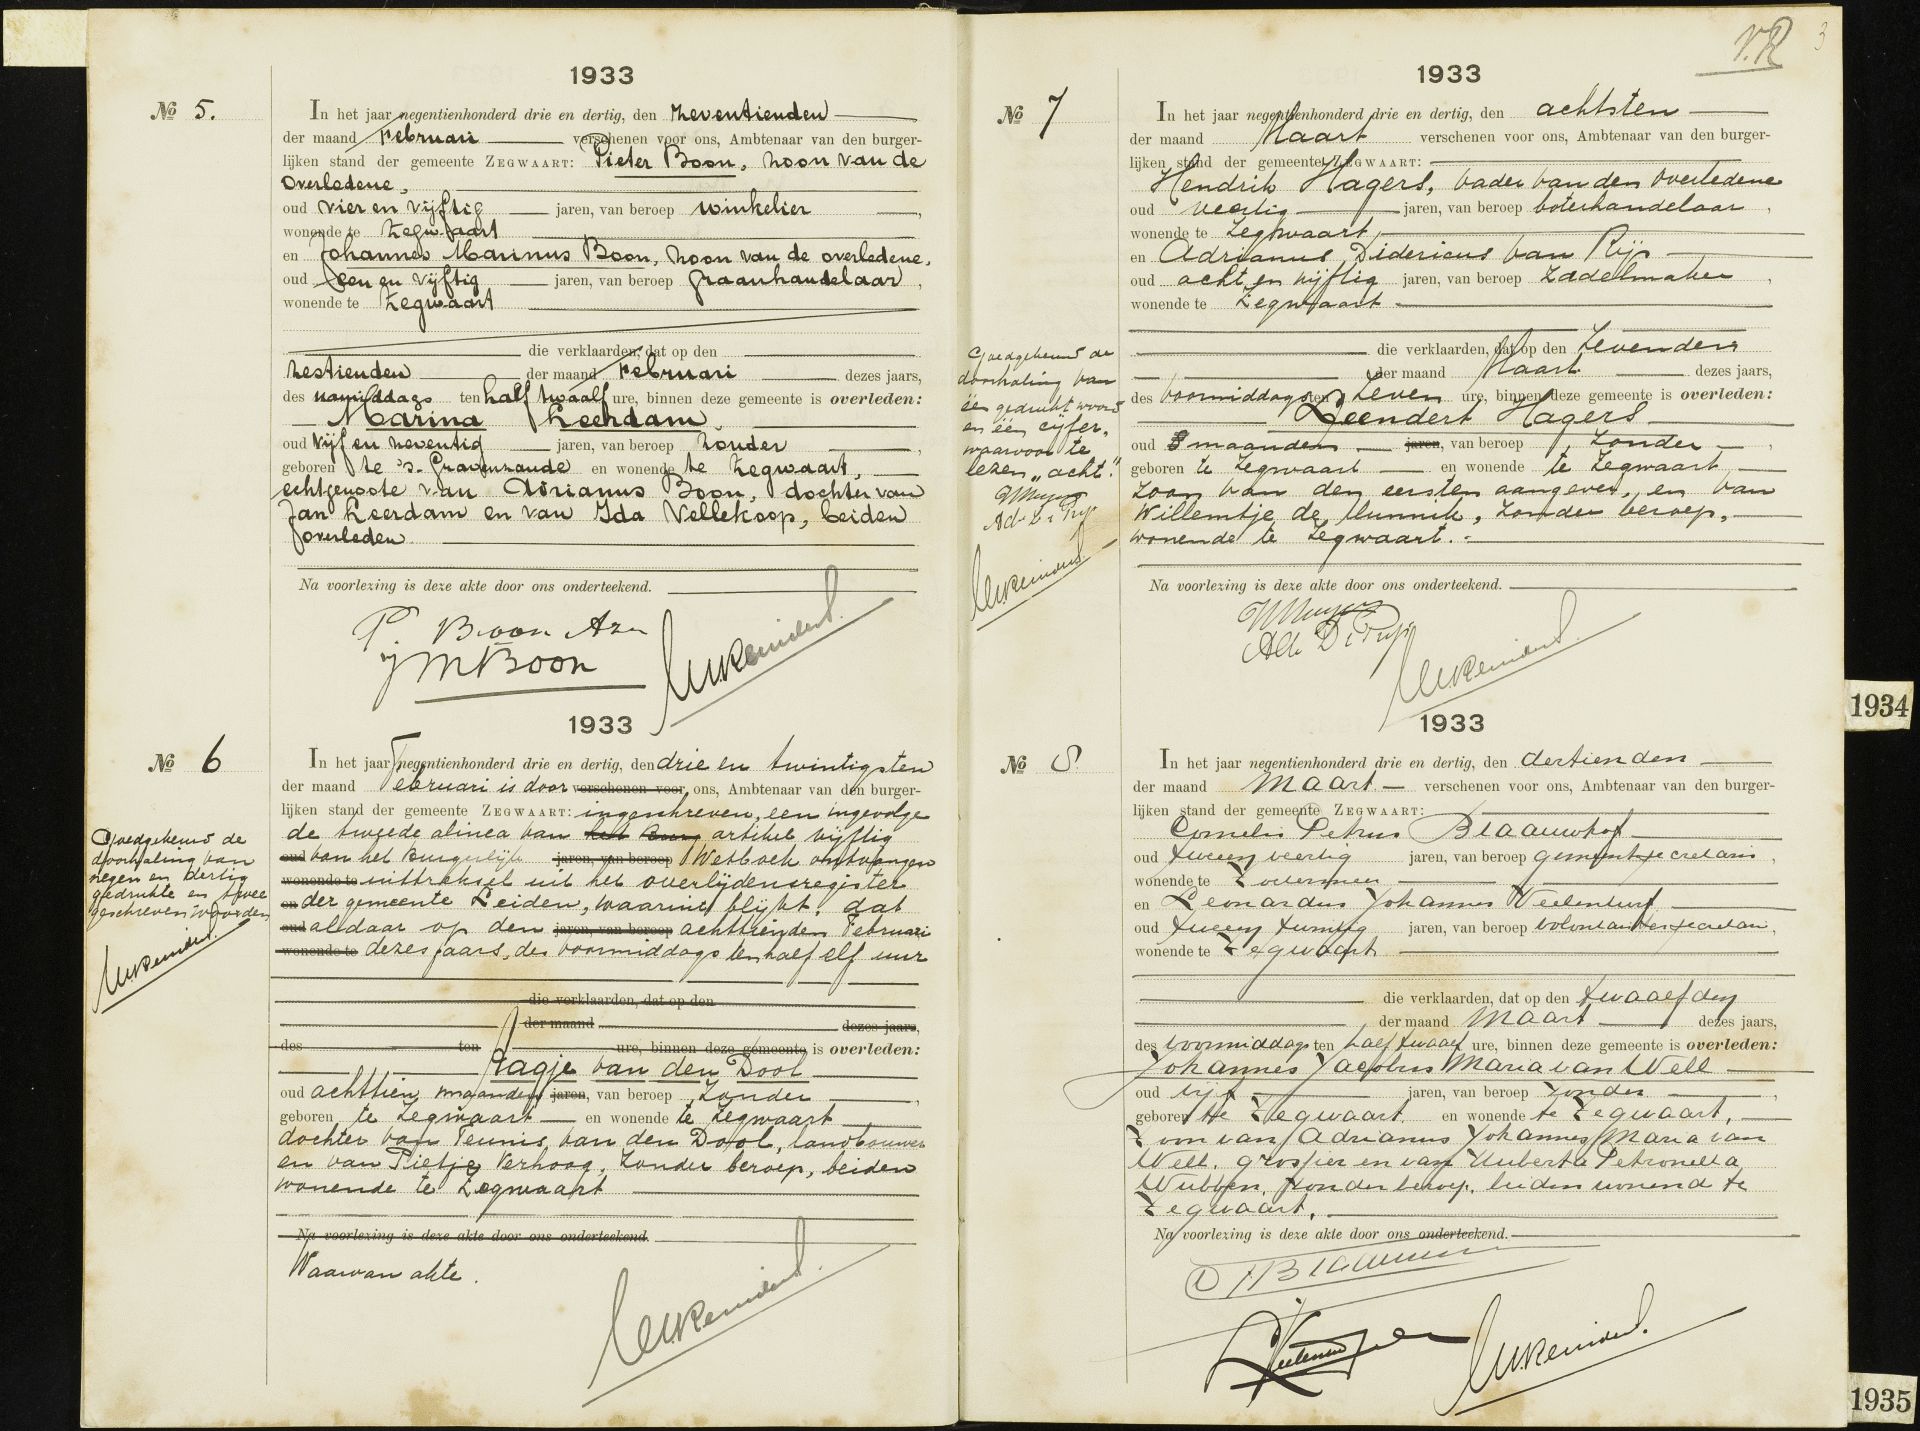 1933
No 5.
In het jaar negentienhonderd drie en dertig, den zeventienden
der maand Februari verschenen voor ons, Ambtenaar van den burger-
lijken stand der gemeente ZEGWAART: Pieter Boon, zoon van de
overledene,
oud vier en vijftig jaren, van beroep winkelier,
wonende te Zegwaart
en Johannes Marinus Boon, zoon van de overledene,
oud een en vijftig jaren, van beroep graanhandelaar,
wonende te Zegwaart
die verklaarden, dat op den
zestienden der maand Februari dezes jaars,
des namiddags ten half twaalf ure, binnen deze gemeente is overleden:
Marina Leerdam
oud vijf en zeventig jaren, van beroep zonder,
geboren te 's-Gravenzande en wonende te Zegwaart,
echtgenoote van Adrianus Boon, dochter van
Jan Leerdam en van Ida Vellekoop, beiden
overleden
Na voorlezing is deze akte door ons onderteekend.
P. Boon Azn
J M Boon
1933
No 6
In het jaar negentienhonderd drie en dertig, den drie en twintigsten
der maand Februari is door verschenen voor ons, Ambtenaar van den burger-
lijken stand der gemeente ZEGWAART: ingeschreven, een ingevolge
de tweede alinea van het Burg artikel vijftig
oud van het Burgerlijk jaren, van beroep Wetboek ontvangen
wonende te uittreksel uit het overlijdensregister
en der gemeente Leiden, waarin blijkt, dat
oud aldaar op den jaren, van beroep achttienden Februari
wonende te dezes jaars, des voormiddags ten half elf uur
die verklaarden, dat op den
der maand dezes jaars,
des ten ure, binnen deze gemeente is overleden:
Aagje van den Dool
oud achttien maanden jaren, van beroep zonder,
geboren te Zegwaart en wonende te Zegwaart
dochter van Teunis van den Dool, landbouwer
en van Pietje Verhoog, zonder beroep, beiden
wonende te Zegwaart
Na voorlezing is deze akte door ons onderteekend.
Waarvan akte.
Goedgekeurd de
doorhaling van
negen en dertig
gedrukte en twee
geschreven woorden
V.R
3
1933
No 7
In het jaar negentienhonderd drie en dertig, den achtsten
der maand Maart verschenen voor ons, Ambtenaar van den burger-
lijken stand der gemeente ZEGWAART:
Hendrik Hagers, vader van den overledene
oud veertig jaren, van beroep boterhandelaar,
wonende te Zegwaart,
en Adrianus Didericus van Rijs
oud acht en vijftig jaren, van beroep zadelmaker,
wonende te Zegwaart
die verklaarden, dat op den zevenden
der maand Maart dezes jaars,
des voormiddags ten zeven ure, binnen deze gemeente is overleden:
Leendert Hagers
oud 8 maanden jaren, van beroep zonder,
geboren te Zegwaart en wonende te Zegwaart,
zoon van den eersten aangever, en van
Willemtje de Munnik, zonder beroep,
wonende te Zegwaart.
Na voorlezing is deze akte door ons onderteekend.
Goedgekeurd de
doorhaling van
één gedrukt woord
en één cijfer,
waarvoor te
lezen "acht".
1933
No 8
In het jaar negentienhonderd drie en dertig, den dertienden
der maand Maart verschenen voor ons, Ambtenaar van den burger-
lijken stand der gemeente ZEGWAART:
Cornelis Petrus Blaauwhof
oud tweeenveertig jaren, van beroep gemeentesecretaris,
wonende te Zoetermeer
en Leonardus Johannes
oud tweeentwintig jaren, van beroep volontair ter secretarie,
wonende te Zegwaart
die verklaarden, dat op den twaalfden
der maand Maart dezes jaars,
des voormiddags ten half twaalf ure, binnen deze gemeente is overleden:
Johannes Jacobus Maria van Well
oud vijf jaren, van beroep zonder,
geboren te Zegwaart en wonende te Zegwaart,
zoon van Adrianus Johannes Maria van
Well, grossier en van Huberta Petronella
Wubben, zonder beroep, beiden wonend te
Zegwaart.
Na voorlezing is deze akte door ons onderteekend.
1934
1935